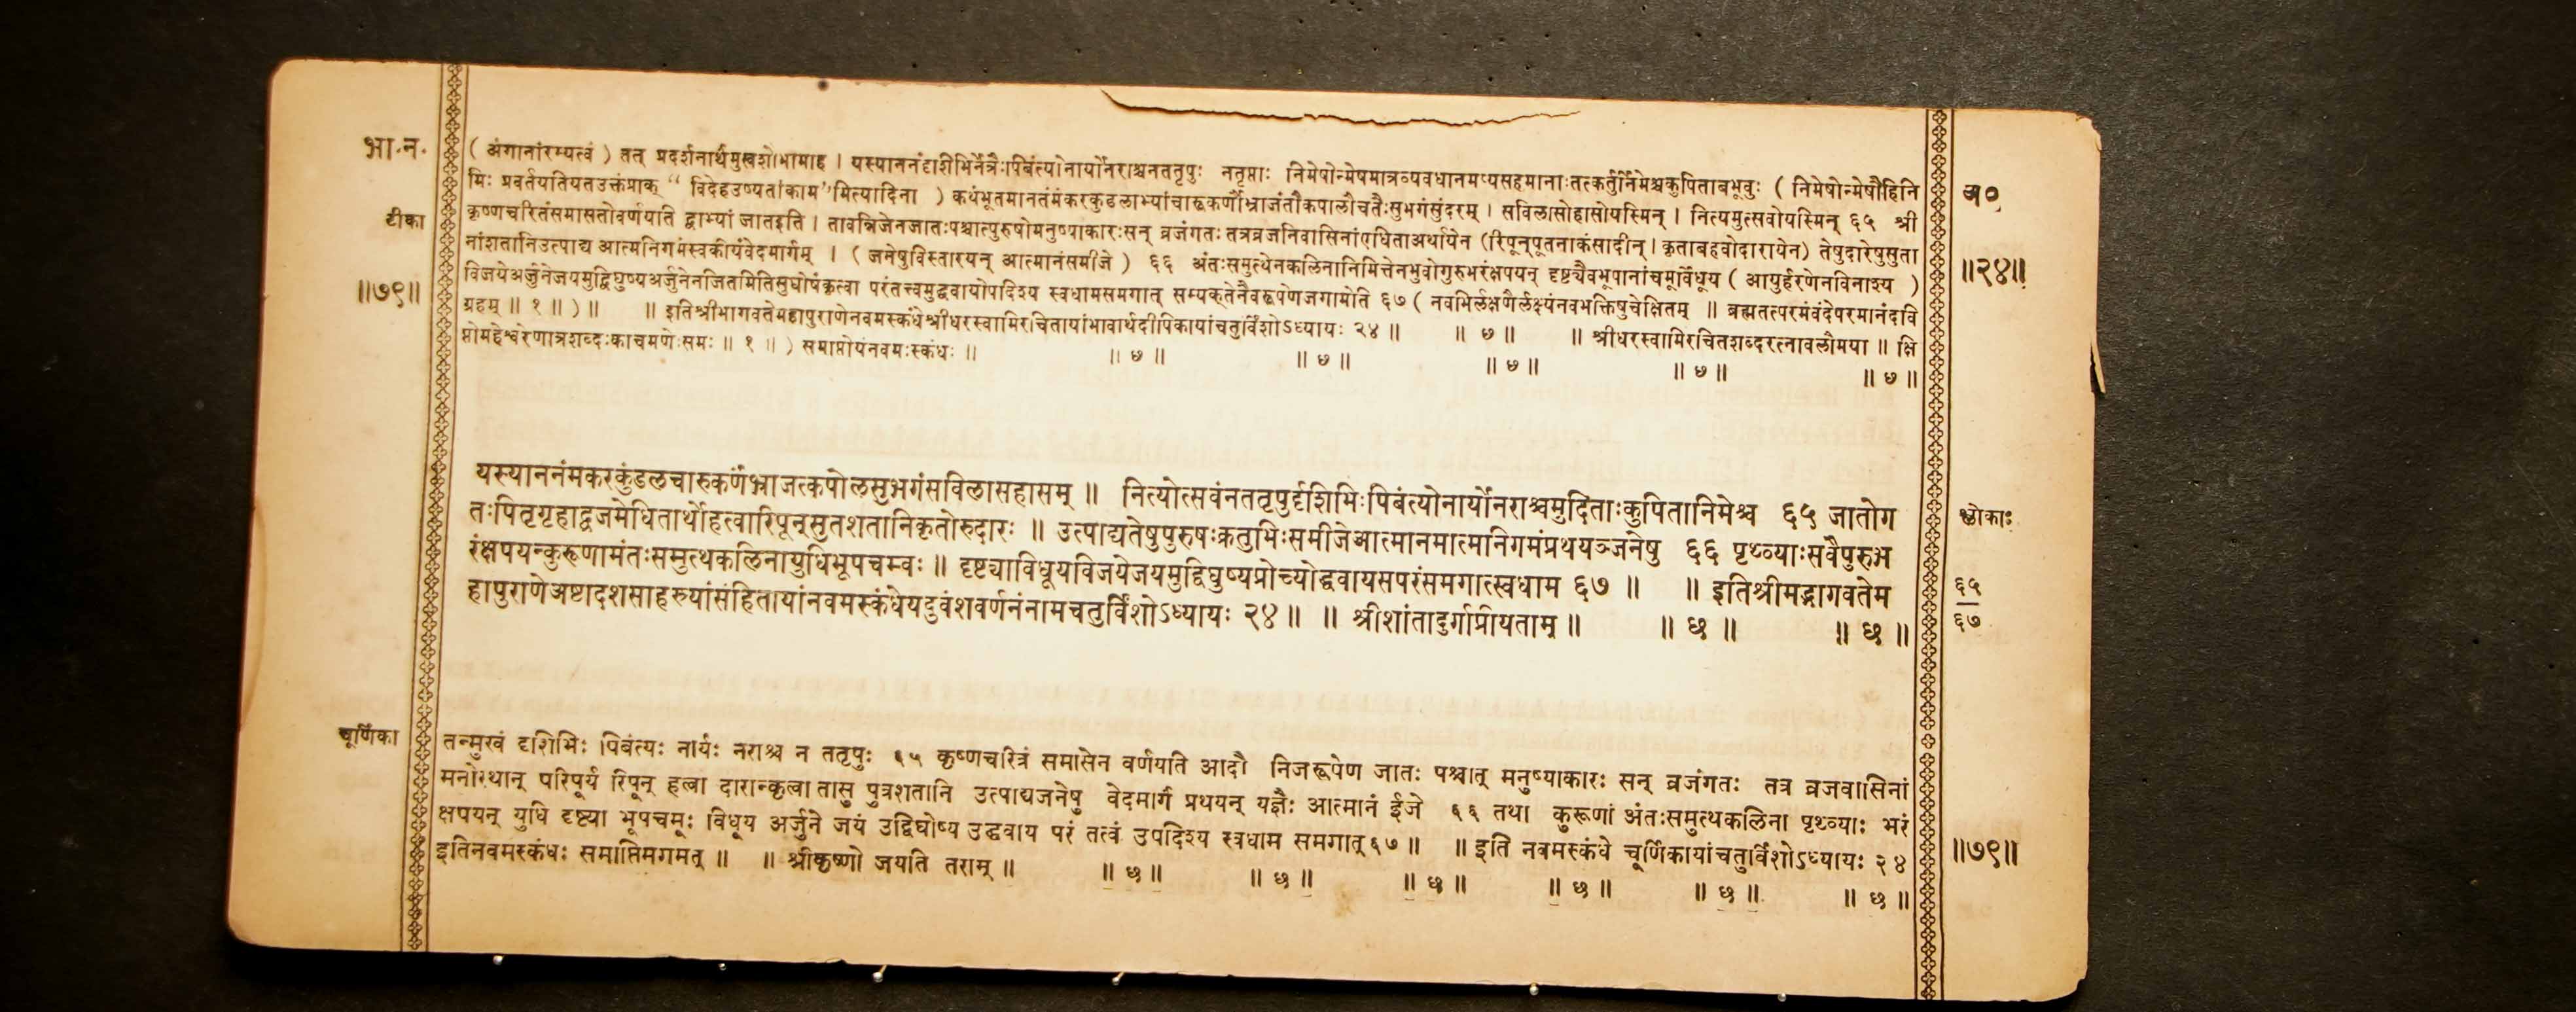 भा.न.
( अंगानांरम्यत्वं ) तत् प्रदर्शनार्थमुखशोभामाह । यस्याननंदृशीभिर्नेत्रैःपिबंत्योनार्योनराश्चनततृपुः नतृप्ताः निमेषोन्मेषमात्रव्यवधानमप्यसहमानाःतत्कर्तुर्निमेश्चकुपिताबभूवुः ( निमेषोन्मेषौहिनि
अ०
मिः प्रवर्तयतियतउक्तंप्राक् “ विदेहउष्यतांकाम”मित्यादिना ) कथंभूतमानतंमकरकुडलाभ्यांचारुकर्णौभ्राजंतौकपालौचतैःसुभगंसुंदरम् । सविलासोहासोयस्मिन् । नित्यमुत्सवोयस्मिन् ६५ श्री
टीका
कृष्णचरितंसमासतोवर्णयति द्वाभ्यां जातइति । तावन्निजेनजातःपश्चात्पुरुषोमनुष्याकारःसन् व्रजंगतः तत्रव्रजनिवासिनांएधिताअर्थायेन (रिपून्पूतनाकंसादीन् । कृताबहवोदारायेन) तेषुदारेषुसुता
॥२४॥
नांशतानिउत्पाद्य आत्मनिगमंस्वकीयंवेदमार्गम् । ( जनेषुविस्तारयन् आत्मानंसमीजे ) ६६ अंतःसमुत्थेनकलिनानिमित्तेनभुवोगुरुभरंक्षपयन् दृष्ट्यैवभूपानांचमूर्विधूय ( आयुर्हरणेनविनाश्य )
॥७९॥
विजयेअर्जुनेजयमुद्विघुष्यअर्जुनेनजितमितिसुघोषंकृत्वा परंतत्त्वमुद्धवायोपदिश्य स्वधामसमगात् सम्यक्तेनैवरूपेणजगामेति ६७ ( नवभिर्लक्षणैर्लक्ष्यंनवभक्तिषुचेक्षितम् ॥ ब्रह्मतत्परमंवंदेपरमानंदवि
ग्रहम् ॥ १ ॥ ) ॥ ॥ इतिश्रीभागवतेमहापुराणेनवमस्कंधेश्रीधरस्वामिरचितायांभावार्थदीपिकायांचतुर्विंशोऽध्यायः २४ ॥ ॥ ७ ॥ ॥ श्रीधरस्वामिरचितशब्दरत्नावलौमया ॥ क्षि
प्तोमहेश्वरेणात्रशब्दःकाचमणेःसमः ॥ १ ॥ ) समाप्तोयंनवमःस्कंधः ॥ ॥ ७ ॥ ॥ ७ ॥ ॥ ७ ॥ ॥ ७ ॥ ॥ ७ ॥
यस्याननंमकरकुंडलचारुकर्णभ्राजत्कपोलसुभगंसविलासहासम् ॥ नित्योत्सवंनततृपुर्दृशिभिःपिबंत्योनार्योनराश्चमुदिताःकुपितानिमेश्च ६५ जातोग
श्लोकाः
तःपितृगृहाद्व्रजमेधितार्थोहत्वारिपून्सुतशतानिकृतोरुदारः ॥ उत्पाद्यतेषुपुरुषःक्रतुभिःसमीजेआत्मानमात्मानिगमंप्रथयञ्जनेषु ६६ पृथ्व्याःसवैपुरुभ
रंक्षपयन्कुरूणामंतःसमुत्थकलिनायुधिभूपचम्वः ॥ दृष्ट्याविधूयविजयेजयमुद्विघुष्यप्रोच्योद्धवायसपरंसमगात्स्वधाम ६७ ॥ ॥ इतिश्रीमद्भागवतेम
६५
हापुराणेअष्टादशसाहस्र्यांसंहितायांनवमस्कंधेयदुवंशवर्णनंनामचतुर्विंशोऽध्यायः २४ ॥ ॥ श्रीशांतादुर्गाप्रीयताम् ॥ ॥ ७ ॥ ॥ ७ ॥
६७
चूर्णिका
तन्मुखं दृशिभिः पिबंत्यः नार्यः नराश्च न ततृपुः ६५ कृष्णचरित्रं समासेन वर्णयति आदौ निजरूपेण जातः पश्चात् मनुष्याकारः सन् व्रजंगतः तत्र व्रजवासिनां
मनोरथान् परिपूर्य रिपून् हत्वा दारान्कृत्वा तासु पुत्रशतानि उत्पाद्यजनेषु वेदमार्गं प्रथयन् यज्ञैः आत्मानं ईजे ६६ तथा कुरूणां अंतःसमुत्थकलिना पृथ्व्याः भरं
क्षपयन् युधि दृष्ट्या भूपचमूः विधूय अर्जुने जयं उद्विघोष्य उद्धवाय परं तत्वं उपदिश्य स्वधाम समगात् ६७ ॥ ॥ इति नवमस्कंधे चूर्णिकायांचतुर्विंशोऽध्यायः २४
॥७९॥
इतिनवमस्कंधः समाप्तिमगमत् ॥ ॥ श्रीकृष्णो जयति तराम् ॥ ॥ ७ ॥ ॥ ७ ॥ ॥ ७ ॥ ॥ ७ ॥ ॥ ७ ॥ ॥ ७ ॥